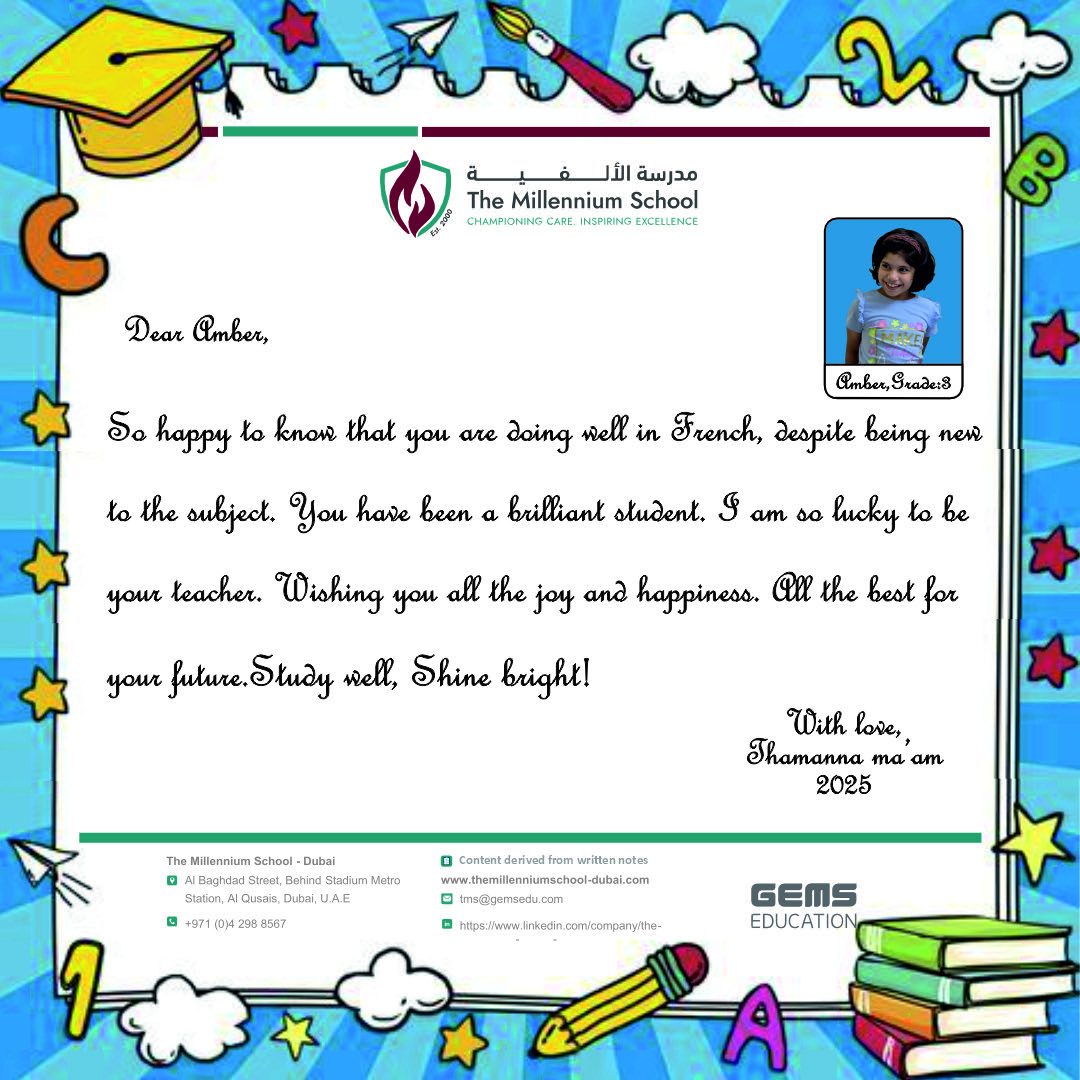 2
B
C
مدرسة الألفية
The Millennium School
CHAMPIONING CARE. INSPIRING EXCELLENCE
Est. 2000
MAKE
Amber,Grade:3
Dear Amber,
So happy to know that you are doing well in French, despite being new
to the subject. You have been a brilliant student. I am so lucky to be
your teacher. Wishing you all the joy and happiness. All the best for
your future.Study well, Shine bright!
With love,
Thamanna ma'am
2025
The Millennium School - Dubai
Al Baghdad Street, Behind Stadium Metro
Station, Al Qusais, Dubai, U.A.E
+971 (0)4 298 8567
Content derived from written notes
www.themillenniumschool-dubai.com
tms@gemsedu.com
https://www.linkedin.com/company/the-
GEMS
EDUCATION
1
A